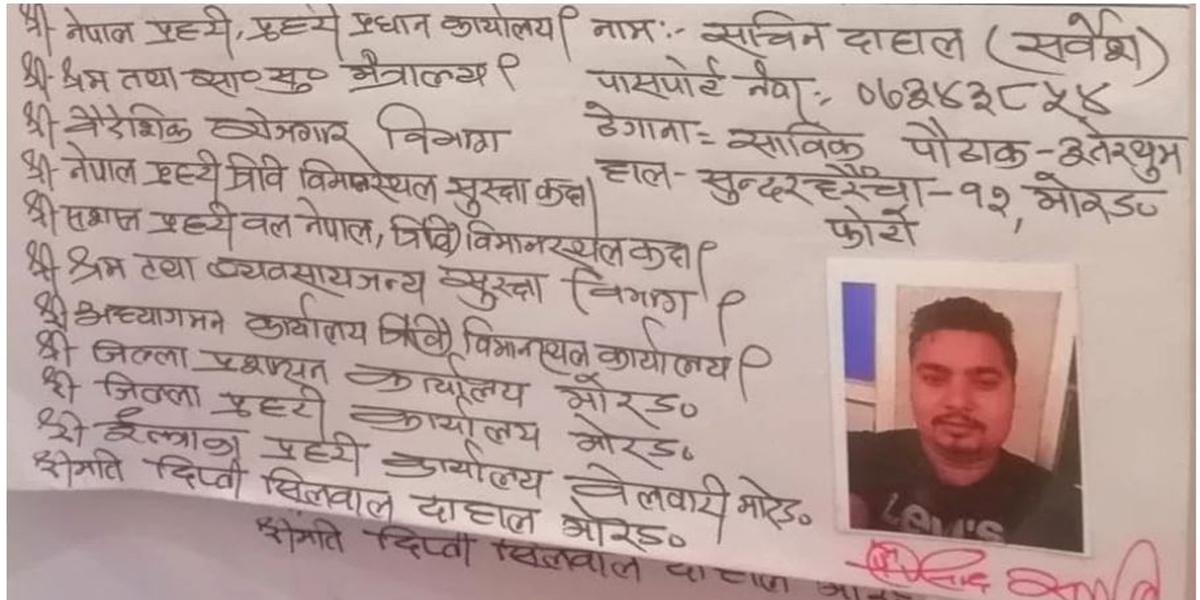 श्री नेपाल प्रहरी, प्रहरी प्रधान कार्यालय।
श्री श्रम तथा सा० सु० मन्त्रालय।
श्री वैदेशिक रोजगार विभाग
श्री नेपाल प्रहरी त्रिवि विमानस्थल सुरक्षा कक्ष।
श्री सशस्त्र प्रहरी वल नेपाल, त्रिवि विमानस्थल कक्ष।
श्री श्रम तथा व्यवसायजन्य सुरक्षा विभाग।
श्री अध्यागमन कार्यालय त्रिवि विमानस्थल कार्यालय।
श्री जिल्ला प्रशासन कार्यालय मोरङ०
श्री जिल्ला प्रहरी कार्यालय मोरङ०
श्री ईलाका प्रहरी कार्यालय वेलवारी मोरङ०
श्रीमति दिप्ती सिलवाल दाहाल मोरङ०
श्रीमति दिप्ती सिलवाल दाहाल
नाम:- सचिन दाहाल (सर्वेश)
पासपोर्ट नंवर:
ठेगाना= साविक पौठाक-
हाल- सुन्दरहरैंचा-१२, मोरङ०
फोटो
Levi's